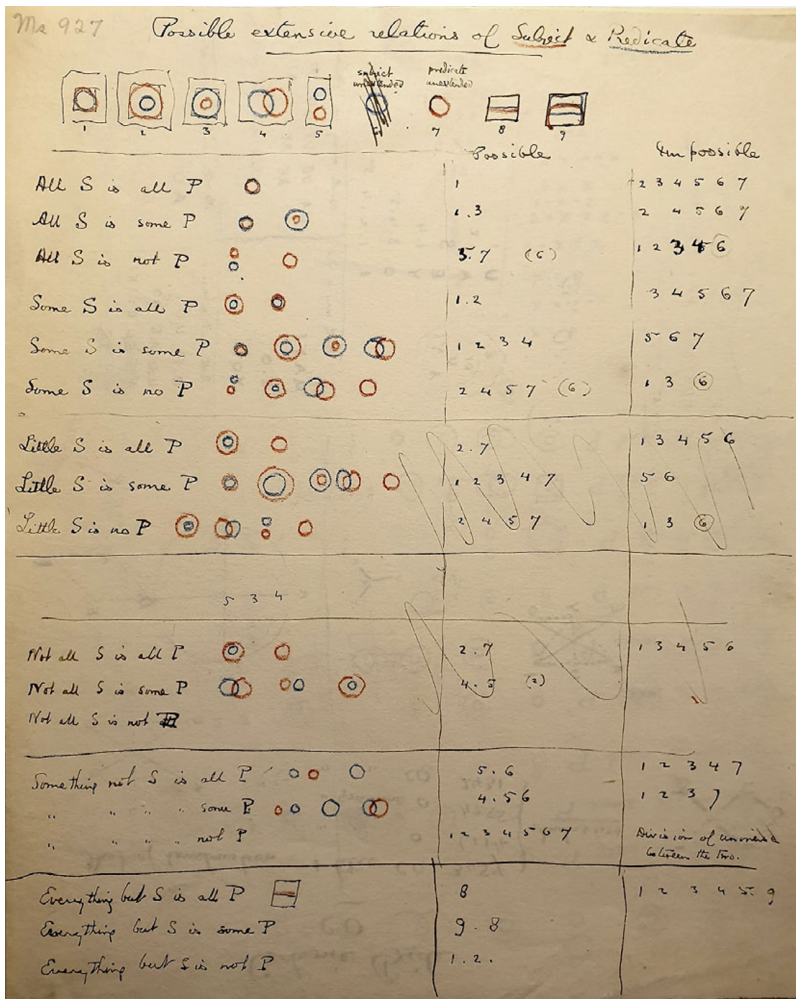 Ms 927
Possible extensive relations of Subject & Predicate
subject unextended
predicate unextended
1 2 3 4 5 6 7 8 9
Possible Impossible
All S is all P 1 2 3 4 5 6 7
All S is some P 1.3 2 4 5 6 7
All S is not P 5.7 (6) 1 2 3 4 6
Some S is all P 1.2 3 4 5 6 7
Some S is some P 1 2 3 4 5 6 7
Some S is no P 2 4 5 7 (6) 1 3 6
Little S is all P 2.7 1 3 4 5 6
Little S is some P 1 2 3 4 7 5 6
Little S is no P 2 4 5 7 1 3 6
5 3 4
Not all S is all P 2.7 1 3 4 5 6
Not all S is some P 4.5 (2)
Not all S is not P
Something not S is all P 5.6 1 2 3 4 7
" " " " some P 4.56 1 2 3 7
" " " " not P 1 2 3 4 5 6 7 Division of universe
between the two.
Everything but S is all P 8 1 2 3 4 5. 9
Everything but S is some P 9.8
Everything but S is not P 1.2.